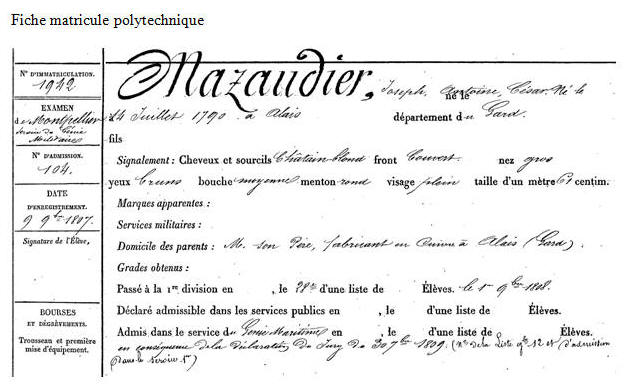 Fiche matricule polytechnique
N° D'IMMATRICULATION.
1942
EXAMEN
de Montpellier
Service du Génie
Militaire
N° D'ADMISSION.
104.
DATE
D'ENREGISTREMENT.
9 9bre 1807.
Signature de l'Élève,
BOURSES
ET DÉGRÈVEMENTS.
Trousseau et première
mise d'équipement.
Mazaudier, Joseph, Antoine, César. Né le
né le
14 Juillet 1790 à Alais département du Gard.
fils
Signalement : Cheveux et sourcils Châtain blond front Couvert nez gros
yeux bruns bouche moyenne menton rond visage plein taille d'un mètre 61 centim.
Marques apparentes :
Services militaires :
Domicile des parents : M. son Père, fabricant en à Alais (Gard).
Grades obtenus :
Passé à la 1re division en , le 28e d'une liste de Élèves. le 1er 9bre 1808.
Déclaré admissible dans les services publics en , le d'une liste de Élèves.
Admis dans le service du Génie Maritime en , le d'une liste de Élèves.
en conséquence de la déclaration du Jury du 30 7bre 1809. (N° de la Liste gle 12 et d'admission
dans le Service 1er)